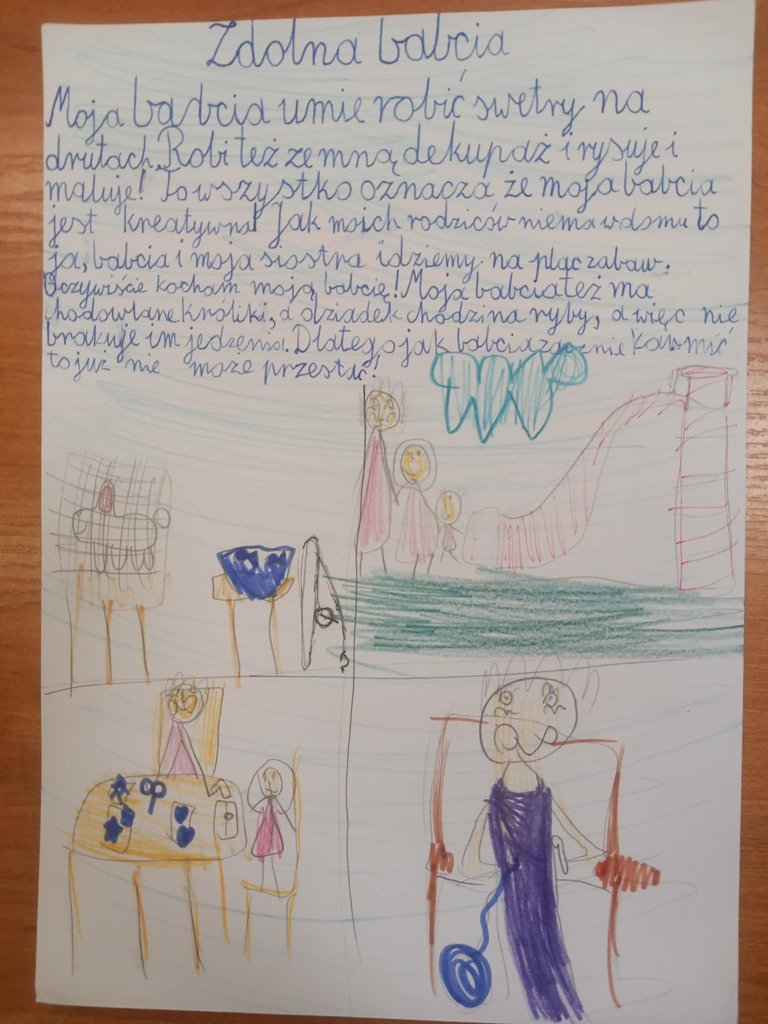 Zdolna babcia
Moja babcia umie robić swetry na
drutach. Robi też ze mną dekupaż i rysuje i
maluje! To wszystko oznacza że moja babcia
jest kreatywna! Jak moich rodziców niema w domu to
ja, babcia i moja siostra idziemy na plac zabaw.
Oczywiście kocham moją babcię! Moja babcia też ma
chodowlane króliki, a dziadek chodzi na ryby, a więc nie
brakuje im jedzenia. Dlatego jak babcia zacznie karmić
to już nie może przestać!